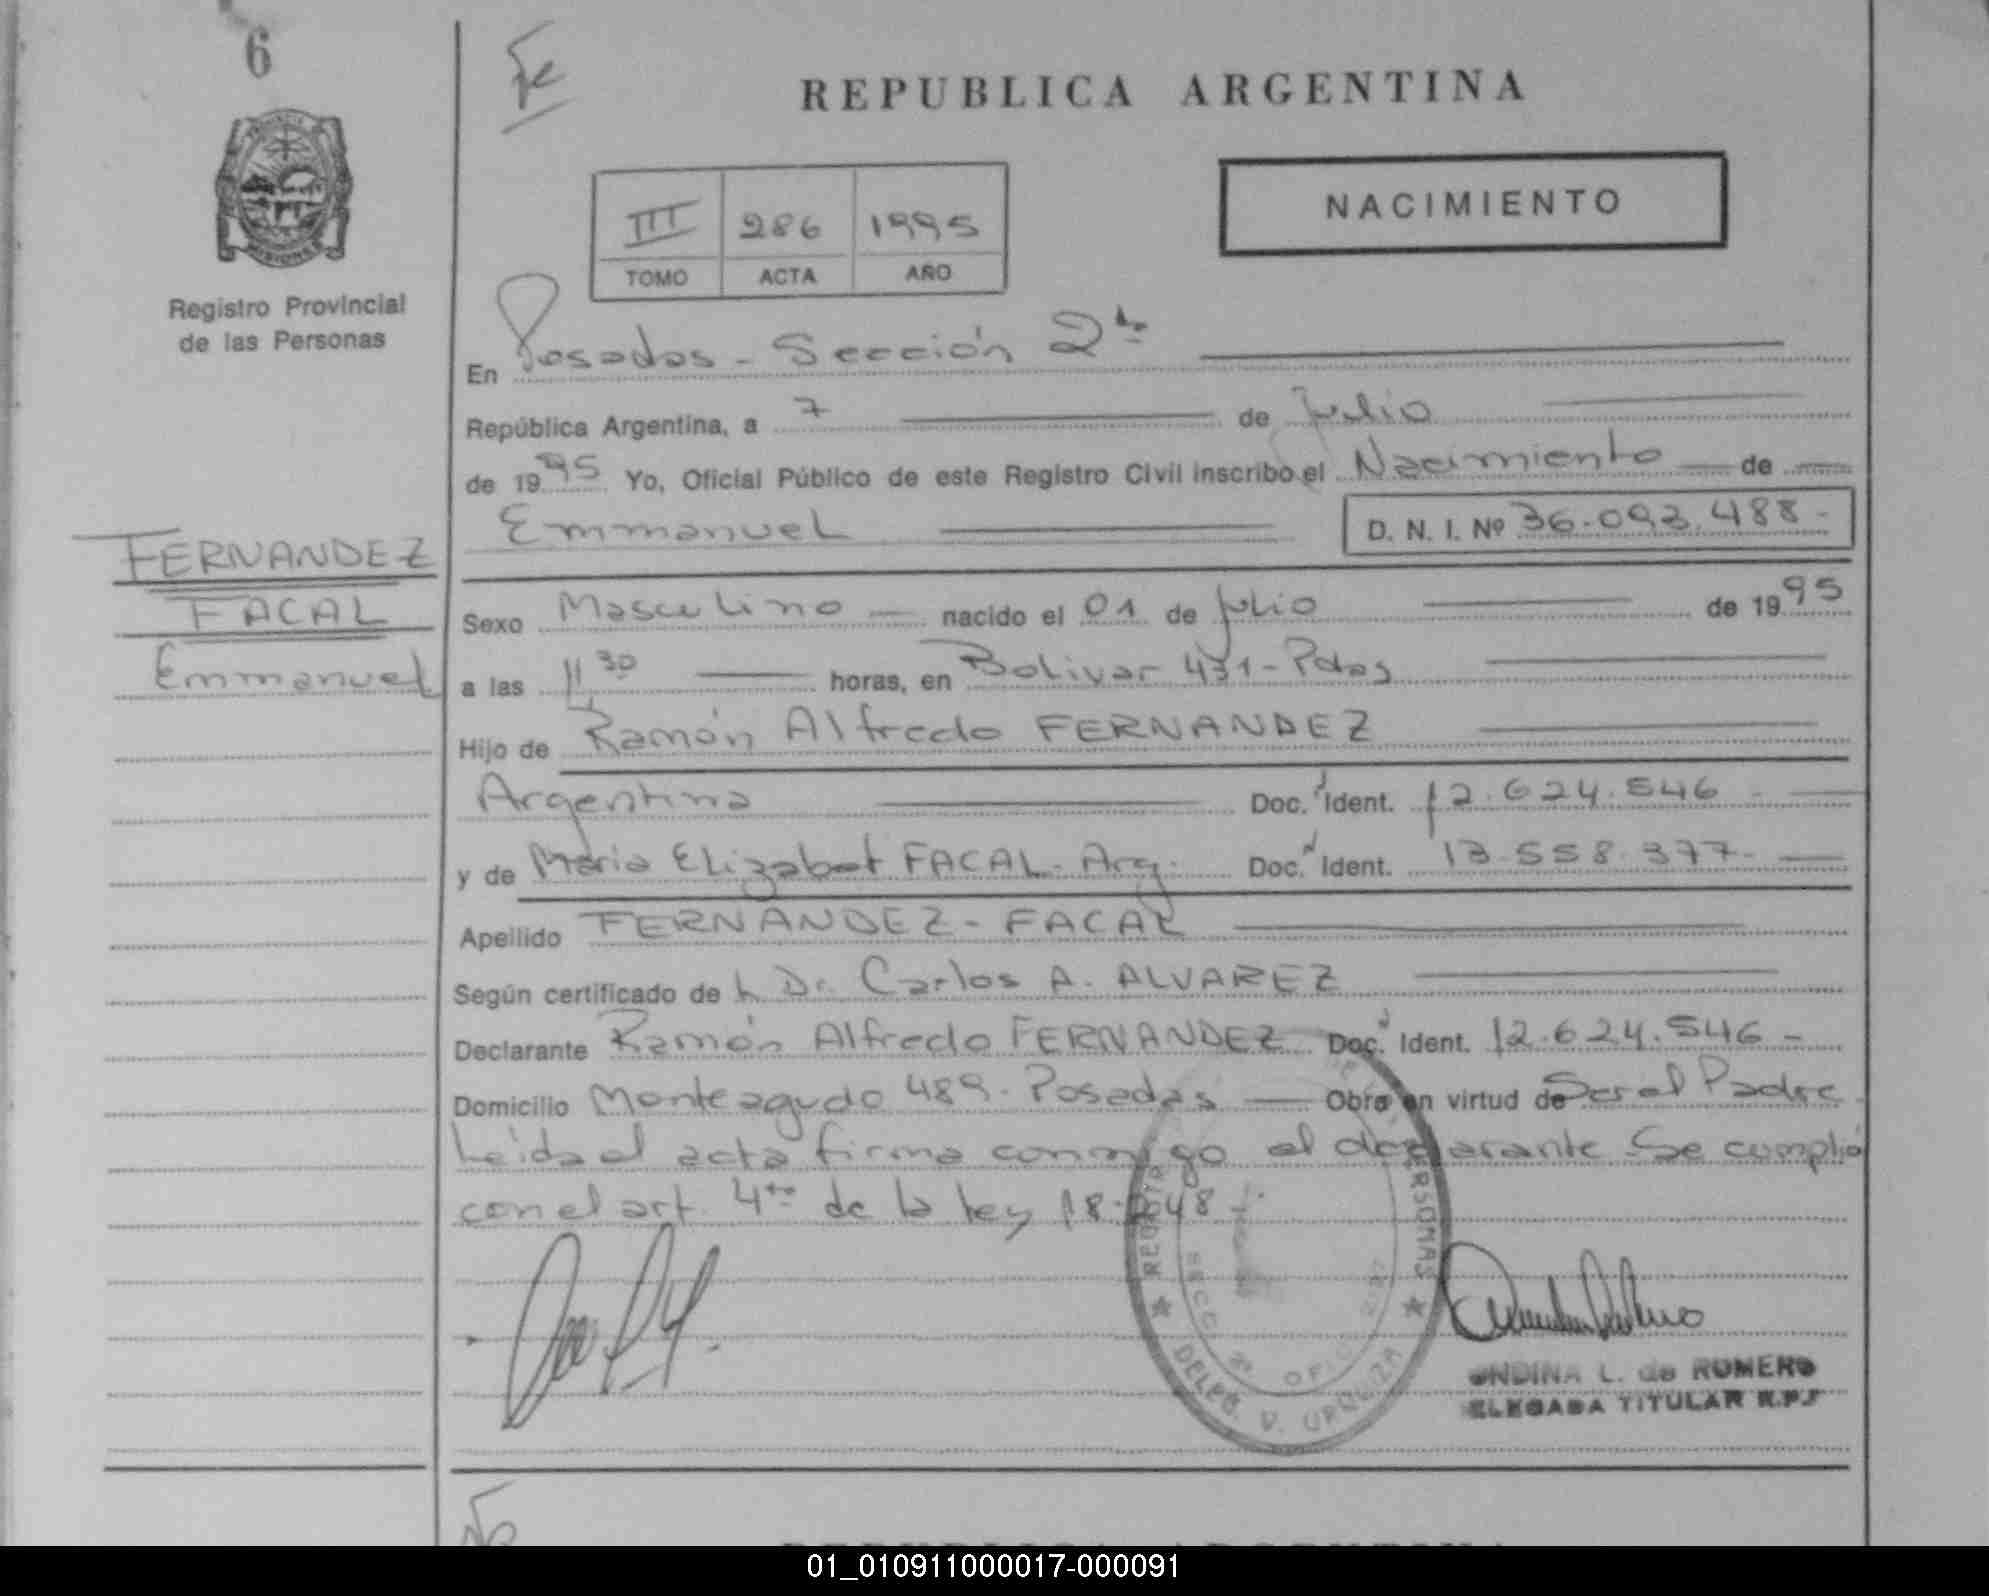 6
REPUBLICA ARGENTINA
NACIMIENTO
III 286 1995
TOMO ACTA AÑO
PROVINCIA
MISIONES
Registro Provincial
de las Personas
En Posadas - Sección 2da
República Argentina, a 7 de Julio
de 1995 Yo, Oficial Público de este Registro Civil inscribo el Nacimiento de
Emmanuel D. N. I. Nº 36.093.488-
FERNANDEZ
FACAL
Emmanuel
Sexo Masculino nacido el 01 de Julio de 1995
a las 11,30 horas, en Bolivar 431 - Pdas
Hijo de Ramón Alfredo FERNANDEZ
Argentina Doc. Ident. 12.624.546
y de Maria Elizabet FACAL - Arg. Doc. Ident. 13.558.377-
Apellido FERNANDEZ - FACAL
Según certificado de L Dr. Carlos A. ALVAREZ
Declarante Ramón Alfredo FERNANDEZ Doc. Ident. 12.624.546-
Domicilio Monteagudo 489 - Posadas Obra en virtud de Ser el Padre
Leida el acta firma conmigo el declarante Se cumplió
con el art. 4to de la Ley 18.248
PERSONAS
SECC 2ª OFIC
DELEG. V. URQUIZA
ONDINA L. de ROMERO
ELEGADA TITULAR R.P.
01_010911000017-000091